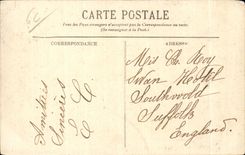 CARTE POSTALE
Tous les Pays étrangers n'acceptent pas la Correspondance au recto.
(Se renseigner à la Poste)
CORRESPONDANCE
ADRESSE
Amitiés
Sincères
Mrs
Swan Hotel
Southwold
Suffolk
England.